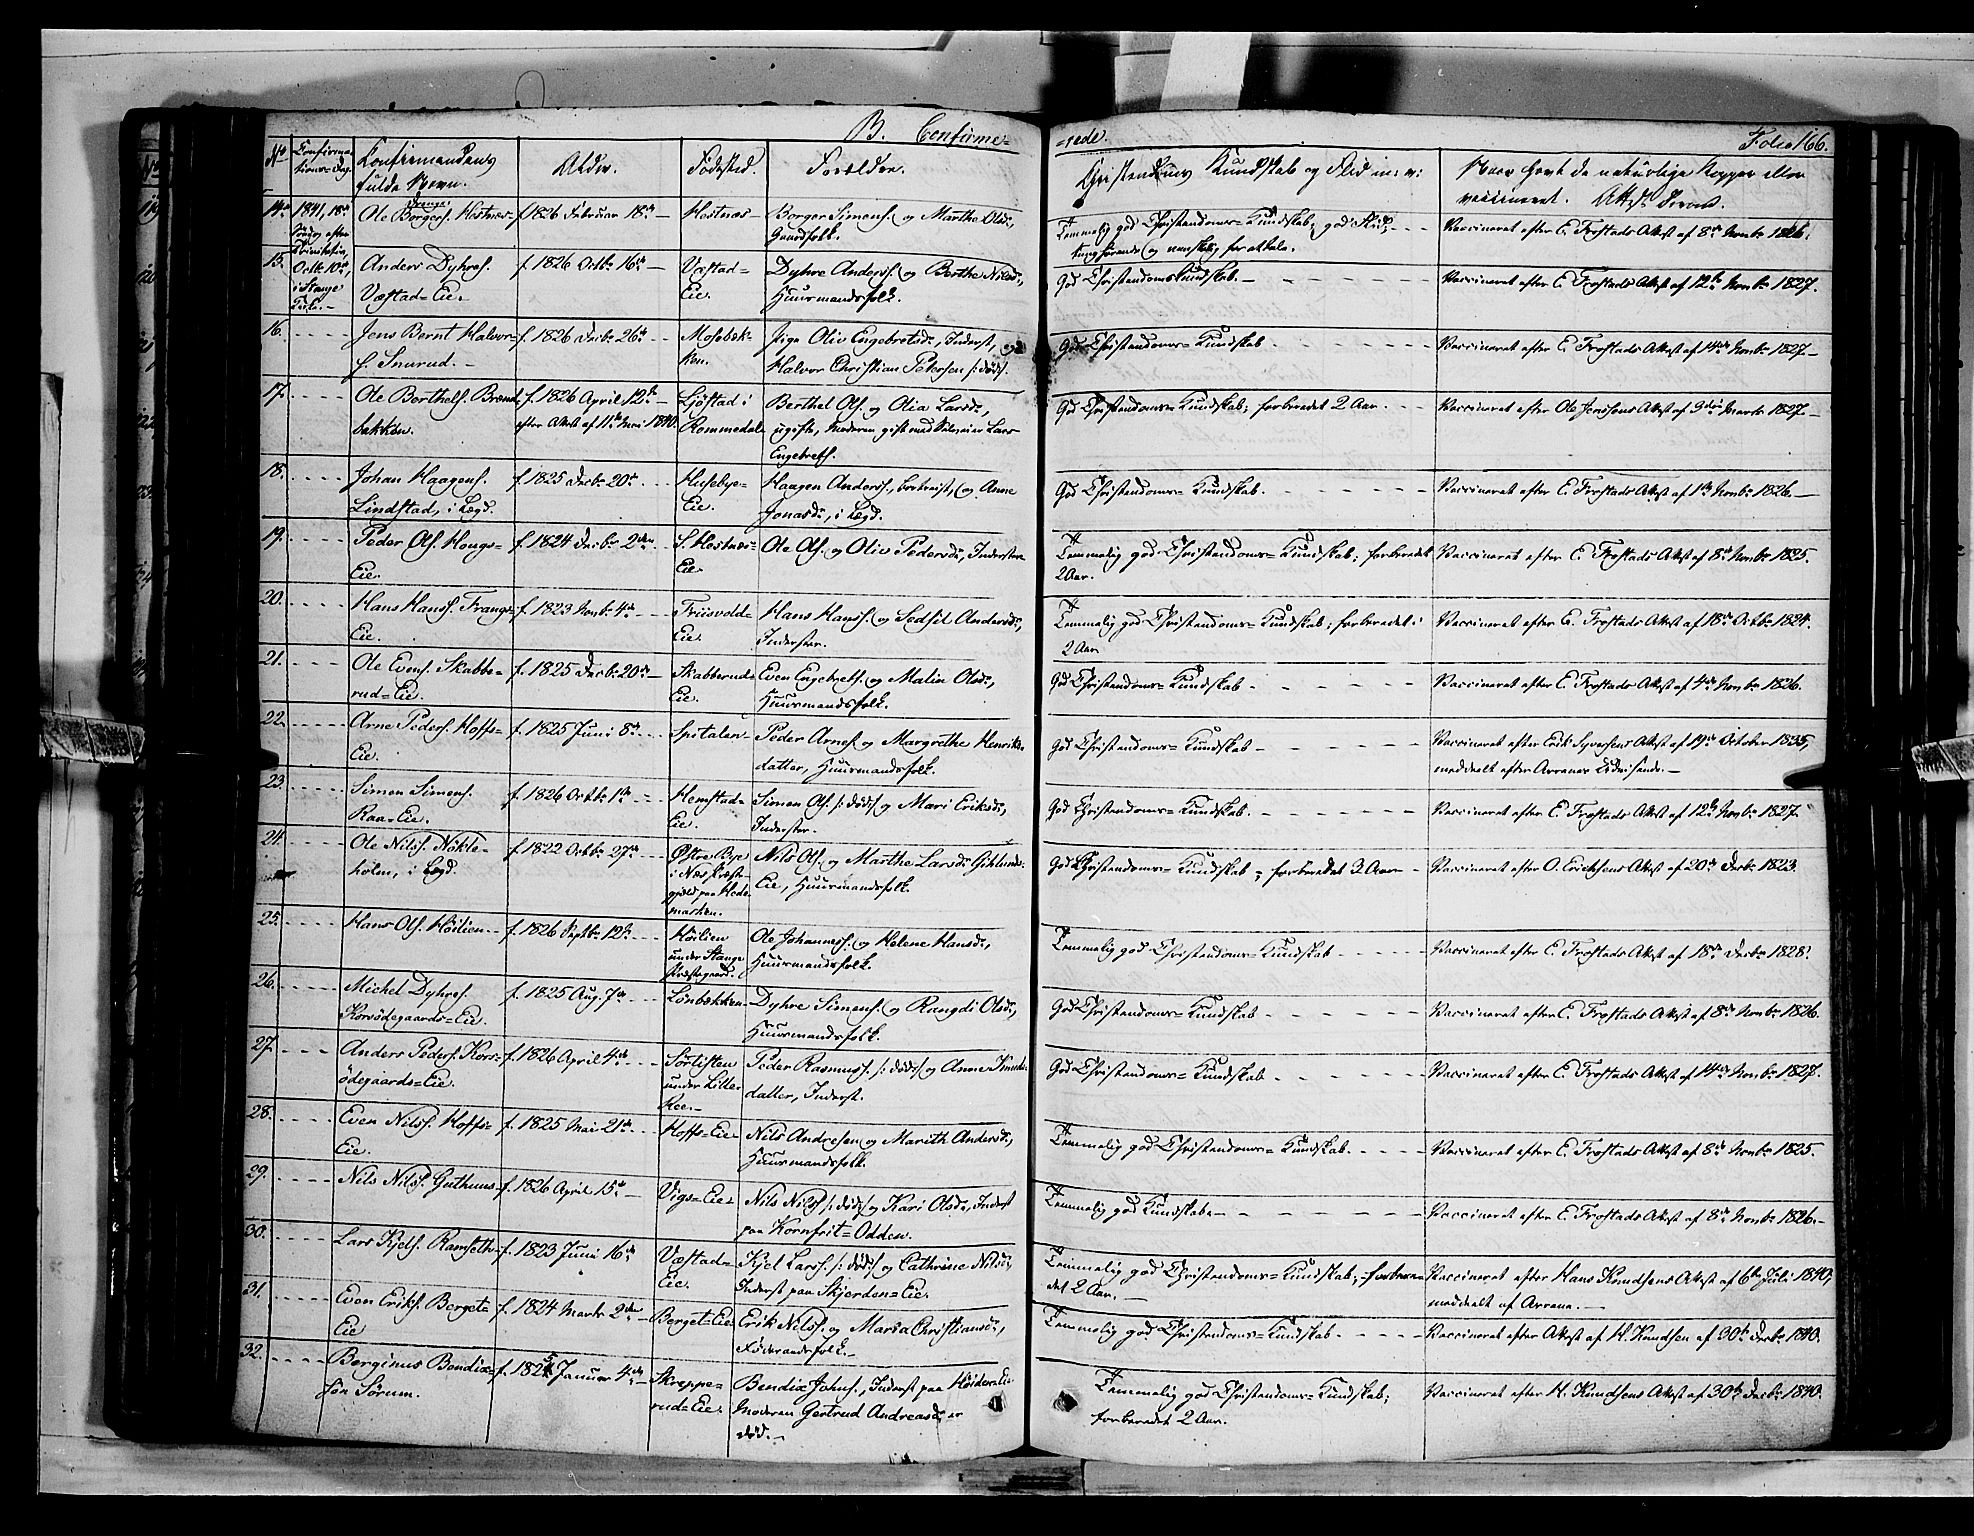 B. Confirme=
=rede.
Folio 166.
No
Confirma
tions=Dag.
Konfirmandens
fulde Navn.
Alder.
Fødested.
Forældre.
Christendoms Kundskab og Flid m: v:
Naar havt de naturlige Kopper eller
vaccineret. Attest derom.
14.
1841, 18de
Søndag efter
Trinitatis,
Octb. 10de,
i Stange
Kirke.-
Drenge.
Ole Borgers. Hestnæs-
f. 1826 Februar 18de
Hestnæs
Borger Simens. og Marthe Olsd.,
Gaardfolk.
Temmelig god Christendoms=Kundskab; god Flid;
Vaccineret efter E. Frøstads Attest af 8de Novb. 1826.
15.
Anders Dyhres.
Væstad=Eie.
f. 1826 Octb. 16de
Væstad=
Eie.
Dyhre Anders. og Berthe Nilsd.,
Huusmandsfolk.
God Christendomskundskab.
Vaccineret efter E. Frøstads Attest af 12te Novb. 1827.
16.
Jens Bernt Halvor-
s. Snurud.
f. 1826 Decb. 26de
Mosebæk-
ken.
Pige Oliv Engebretsd., Inderst, og
Halvor Christian Petersen /: død:/
God Christendoms=Kundskab
Vaccineret efter E. Frøstads Attest af 14de Novb. 1827
17.
Ole Berthels. Brænd
bakken.
f. 1826 April 12te
efter Attest af 11te Mai 1840.
Ljøstad i
Rommedal
Berthel Ols. og Olia Larsd.,
ugifte, Moderen gift med Lars
Engebrets.
God Christendoms=Kundskab; forberedet 2 Aar.
Vaccineret efter Ole Jenssens Attest af 9de Marts 1827
18.
Johan Haagens.
Lindstad, i Lægd.
f. 1825 Decb. 20de
Husebye=
Eie.
Haagen Anders., bortreist, og Anne
Jonasd., i Lægd.
God Christendoms=Kundskab.
Vaccineret efter E. Frøstads Attest af 1ste Novb. 1826
19.
Peder Ols. Hougs=
Eie.
f. 1824 Decb. 2den
S. Hestnæs=
Eie
Ole Ols. og Oliv Pedersd., Inderster
Temmelig god Christendoms=Kundskab; forberedet
2 Aar.
Vaccineret efter E. Frøstads Attest af 8de Novb. 1825.
20.
Hans Hans. Frangs=
Eie.
f. 1823 Novb. 4de
Friisvold=
Eie.
Hans Hans. og Sedsil Andersd.,
Inderster.
Temmelig god Christendoms=Kundskab; forberedet i
2 Aar
Vaccineret efter E. Frøstads Attest af 18de Octb. 1824.
21.
Ole Evens. Skabbe=
rud=Eie.
f. 1825 Decb. 20de
Skabberud=
Eie.
Even Engebrets. og Malia Olsd.,
Huusmandsfolk.
God Christendoms=Kundskab
Vaccineret efter E. Frøstads Attest af 4de Novb. 1826.
22.
Arne Peders. Hoffs=
Eie.
f. 1825 Juni 8de
Spitalen
Peder Arnes. og Margrethe Henriks
datter, Huusmandsfolk.
God Christendoms=Kundskab
Vaccineret efter Erik Syversens Attest af 19de October 1835,
meddeelt efter Arrenes Udvisende.
23.
Simen Simens.
Raa=Eie.
f. 1826 Octb. 1ste
Hemstad=
Eie.
Simen Ols. /: død:/ og Mari Eriksd.,
Inderster.
God Christendoms=Kundskab.
Vaccineret efter E. Frøstads Attest af 12te Novb. 1827.
24.
Ole Nils. Nökle-
holen, i Lægd.
f. 1822 Octb. 27de
Østre Bye
i Næs Præste-
gjeld paa Hede
marken.
Nils Ols. og Marthe Larsd. Gihlunds=
Eie, Huusmandsfolk.
God Christendoms=Kundskab; forberedet 3 Aar
Vaccineret efter O. Erichsens Attest af 20de Decb. 1823.
25.
Hans Ols. Höilien
f. 1826 Septb. 12te
Höilien
under Stange
Præstegaard.
Ole Johannes. og Helene Hansd.,
Huusmandsfolk.
Temmelig god Christendoms=Kundskab
Vaccineret efter E. Frøstads Attest af 18de Decb. 1828.
26.
Michel Dyhres.
Korsödegaards=Eie.
f. 1825 Aug. 7de
Lönbækken
Dyhre Simens. og Rangdi Olsd.,
Huusmandsfolk.
God Christendoms=Kundskab
Vaccineret efter E. Frøstads Attest af 8de Novb. 1826.
27.
Anders Peders. Kors=
ödegaards=Eie.
f. 1826 April 4de
Sörlisten
under Lille
Ree.
Peder Rasmus. /: død:/ og Anne Knuds
datter, Inderst.
God Christendoms=Kundskab
Vaccineret efter E. Frøstads Attest af 14de Novb. 1827.
28.
Even Nils. Hoffs=
Eie.
f. 1825 Mai 21de
Hoffs=Eie
Nils Andresen og Marith Andersd.,
Huusmandsfolk.
Temmelig god Christendoms=Kundskab.
Vaccineret efter E. Frøstads Attest af 8de Novb. 1825.
29.
Nils Nils. Guthuus
f. 1826 April 15de
Vigs=Eie
Nils Nils. /: død:/ og Kari Olsd., Inderst
paa Kornfrit=Odden.
Temmelig god Kundskab.
Vaccineret efter E. Frøstads Attest af 8de Novb. 1826.
30.
Lars Kjels. Ramseth
f. 1823 Juni 16de
Væstad=
Eie.
Kjel Lars. /: død:/ og Cathrine Nilsd.,
Inderst paa Skjerden=Eie.
Temmelig god Christendoms=Kundskab; forbere=
det 2 Aar.
Vaccineret efter Hans Knudsens Attest af 6te Juli 1840,
meddeelt af Arrene.
31.
Even Eriks. Berget=
Eie
f. 1824 Marts 2den
Berget=Eie
Erik Nils. og Maria Christiansd.,
Föderaadsfolk.
Temmelig god Christendoms=Kundskab
Vaccineret efter Attest af H. Knudsen af 30te Decb. 1840.
32.
Berginus Bendix=
sön Sörum.
f. 1825 Januar 4de
Skreppe=
rud=Eie.
Bendix Johns., Inderst paa Höiden=Eie.
Moderen Gertrud Andreasd. er
død.
Temmelig god Christendoms=Kundskab;
forberedet 2 Aar.
Vaccineret efter H. Knudsens Attest af 30te Decb. 1840.